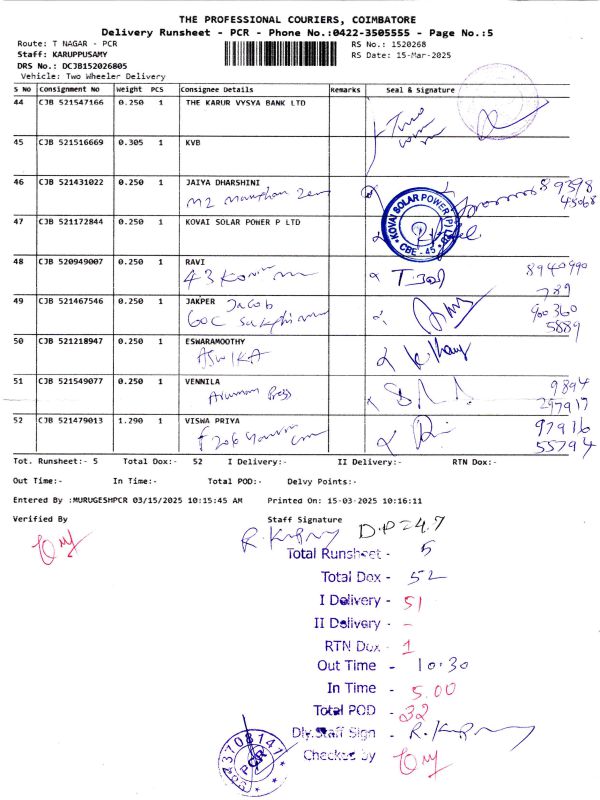 THE PROFESSIONAL COURIERS, COIMBATORE
Delivery Runsheet - PCR - Phone No.:0422-3505555 - Page No.:5
Route: T NAGAR - PCR
RS No.: 1520268
Staff: KARUPPUSAMY
RS Date: 15-Mar-2025
DRS No.: DCJB152026805
Vehicle: Two Wheeler Delivery
S No Consignment No Weight PCS Consignee Details Remarks Seal & Signature
44 CJB 521547166 0.250 1 THE KARUR VYSYA BANK LTD
45 CJB 521516669 0.305 1 KVB
46 CJB 521431022 0.250 1 JAIYA DHARSHINI
89398
45068
47 CJB 521172844 0.250 1 KOVAI SOLAR POWER P LTD
KOVAI SOLAR POWER (P) LTD
CBE - 45
48 CJB 520949007 0.250 1 RAVI
43
8940990
789
49 CJB 521467546 0.250 1 JAKPER Jacob
60C
90360
5889
50 CJB 521218947 0.250 1 ESWARAMOOTHY
ASWIKA
51 CJB 521549077 0.250 1 VENNILA
Press
9894
297917
52 CJB 521479013 1.290 1 VISWA PRIYA
F206
97916
55794
Tot. Runsheet:- 5 Total Dox:- 52 I Delivery:- II Delivery:- RTN Dox:-
Out Time:- In Time:- Total POD:- Delvy Points:-
Entered By :MURUGESHPCR 03/15/2025 10:15:45 AM Printed On: 15-03-2025 10:16:11
Verified By Staff Signature
D.P=47
Total Runsheet - 5
Total Dox - 52
I Delivery - 51
II Delivery - -
RTN Dox - 1
Out Time - 10:30
In Time - 5.00
Total POD - 32
Dly.Staff Sign -
Checked by
43708141
PCR